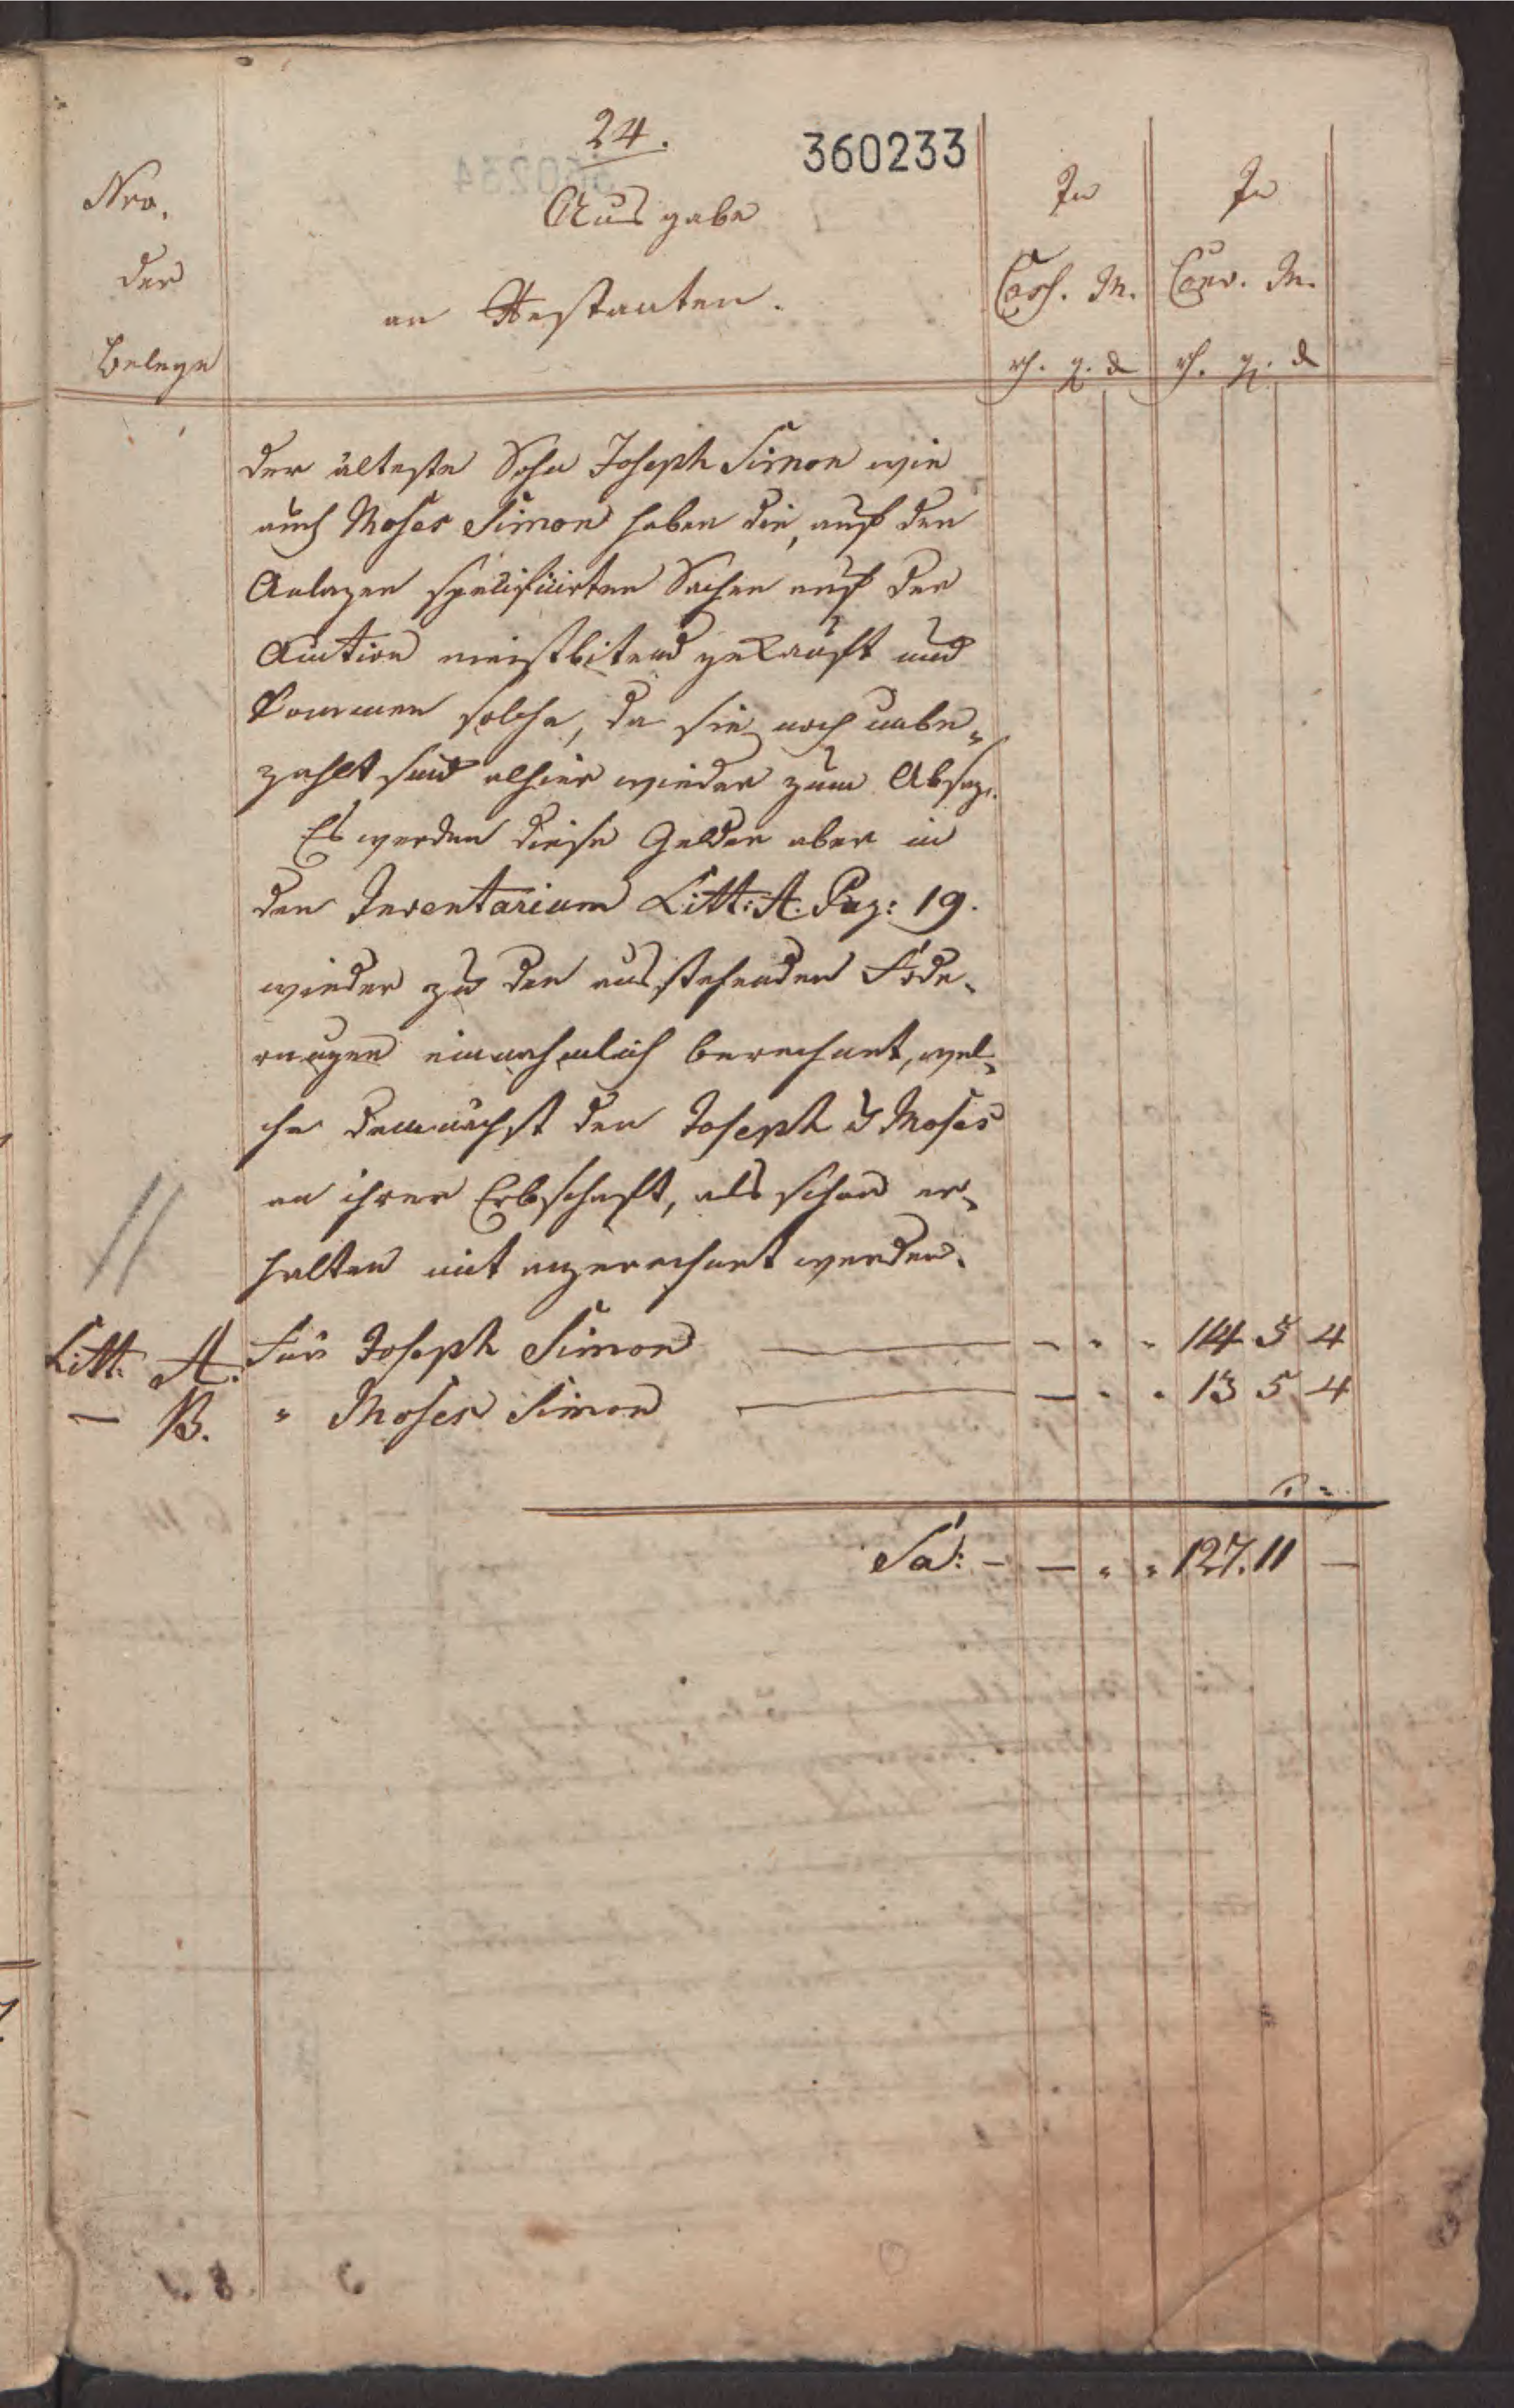 24.
360233
Nro.
der
Belege
Ausgabe
an Restanten.
In
Cass. M.
In
Conv. M.
rh. g. d
rh. g. d
Der älteste Sohn Joseph Simon wie
auch Moses Simon haben die, auf den
Anlagen specificirten Sachen auf der
Auction meistbitend gekauft und
kommen solche, da sie noch unbe-
zahlt sind alhier wieder zum Absaz.
Es werden diese Gelder aber in
den Inventarium Litt: A. Pag: 19.
wieder zu den ausstehenden Föde-
rungen einnahmlich berechnet, wel-
che demnächst den Joseph & Moses
an ihrer Erbschaft, als schon er-
halten mit angerechnet werden.
Litt. A. Für Joseph Simon — - " " 114 5 4
— B. " Moses Simon — — " " 13 5 4
Sa: - — " " 127. 11 —